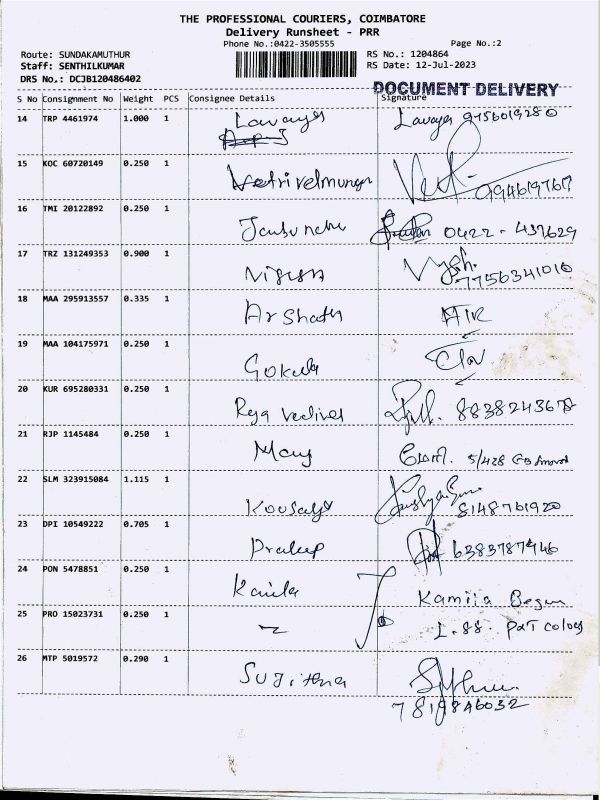 THE PROFESSIONAL COURIERS, COIMBATORE
Delivery Runsheet - PRR
Phone No.:0422-3505555 Page No.:2
Route: SUNDAKAMUTHUR RS No.: 1204864
Staff: SENTHILKUMAR RS Date: 12-Jul-2023
DRS No.: DCJB120486402
DOCUMENT DELIVERY
S No Consignment No Weight PCS Consignee Details Signature
14 TRP 4461974 1.000 1 Lavanya Lavanya
15 KOC 60720149 0.250 1 Vetrivelmurugan
16 TMI 20122892 0.250 1 0422 - 437629
17 TRZ 131249353 0.900 1 7756341010
18 MAA 295913557 0.335 1 Arshath
19 MAA 104175971 0.250 1 Gokula
20 KUR 695280331 0.250 1 8838243678
21 RJP 1145484 0.250 1 Mary 5/428
22 SLM 323915084 1.115 1 8148761920
23 DPI 10549222 0.705 1 Pradeep 6383787946
24 PON 5478851 0.250 1 Kamila Begum
25 PRO 15023731 0.250 1 L.88.
26 MTP 5019572 0.290 1 Sujithra
7819846032